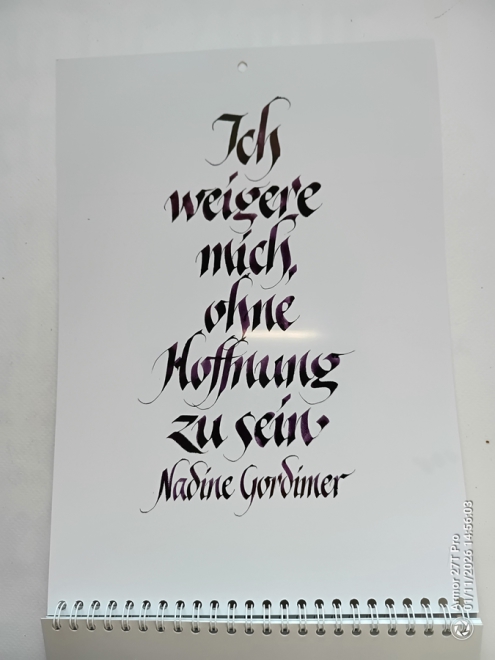 Ich
weigere
mich,
ohne
Hoffnung
zu sein.
Nadine Gordimer
Armor 27T Pro
01/11/2026 14:56:03